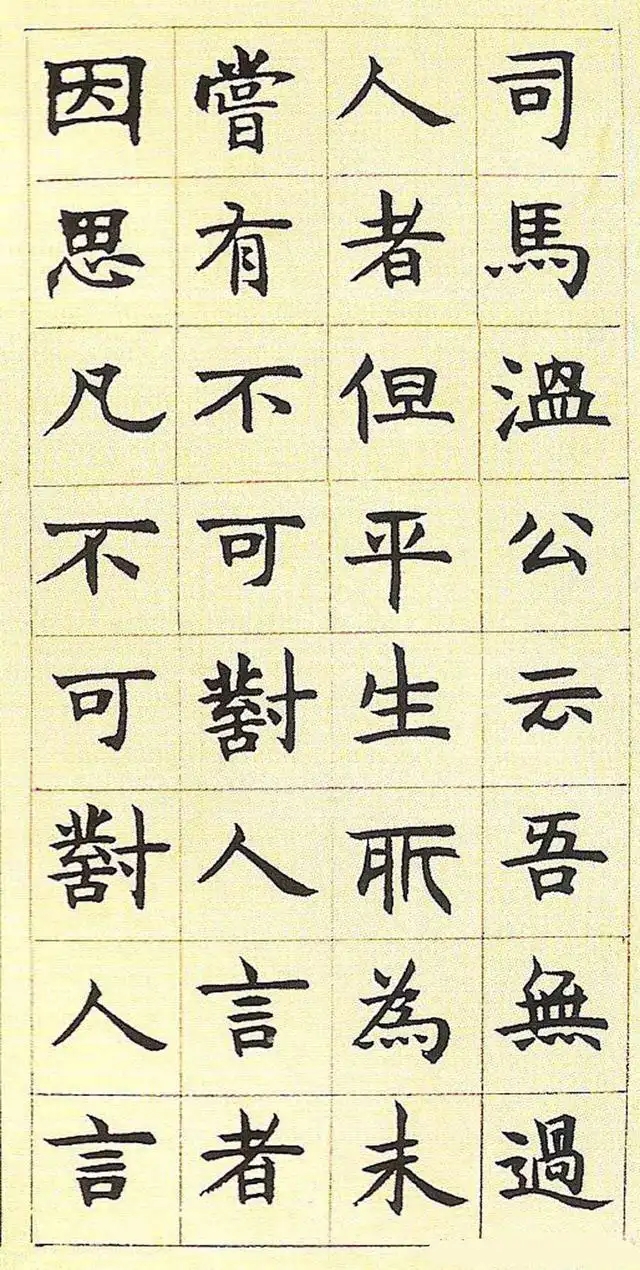 司馬溫公云吾無過
人者但平生所為未
嘗有不可對人言者
因思凡不可對人言